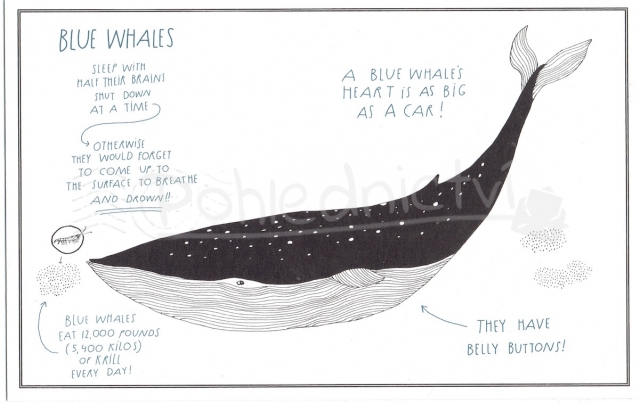 BLUE WHALES
SLEEP WITH
HALF THEIR BRAINS
SHUT DOWN
AT A TIME
OTHERWISE
THEY WOULD FORGET
TO COME UP TO
THE SURFACE TO BREATHE
AND DROWN!!
A BLUE WHALE'S
HEART IS AS BIG
AS A CAR!
BLUE WHALES
EAT 12,000 POUNDS
(5,400 KILOS)
OF KRILL
EVERY DAY!
THEY HAVE
BELLY BUTTONS!
Pohlednictví